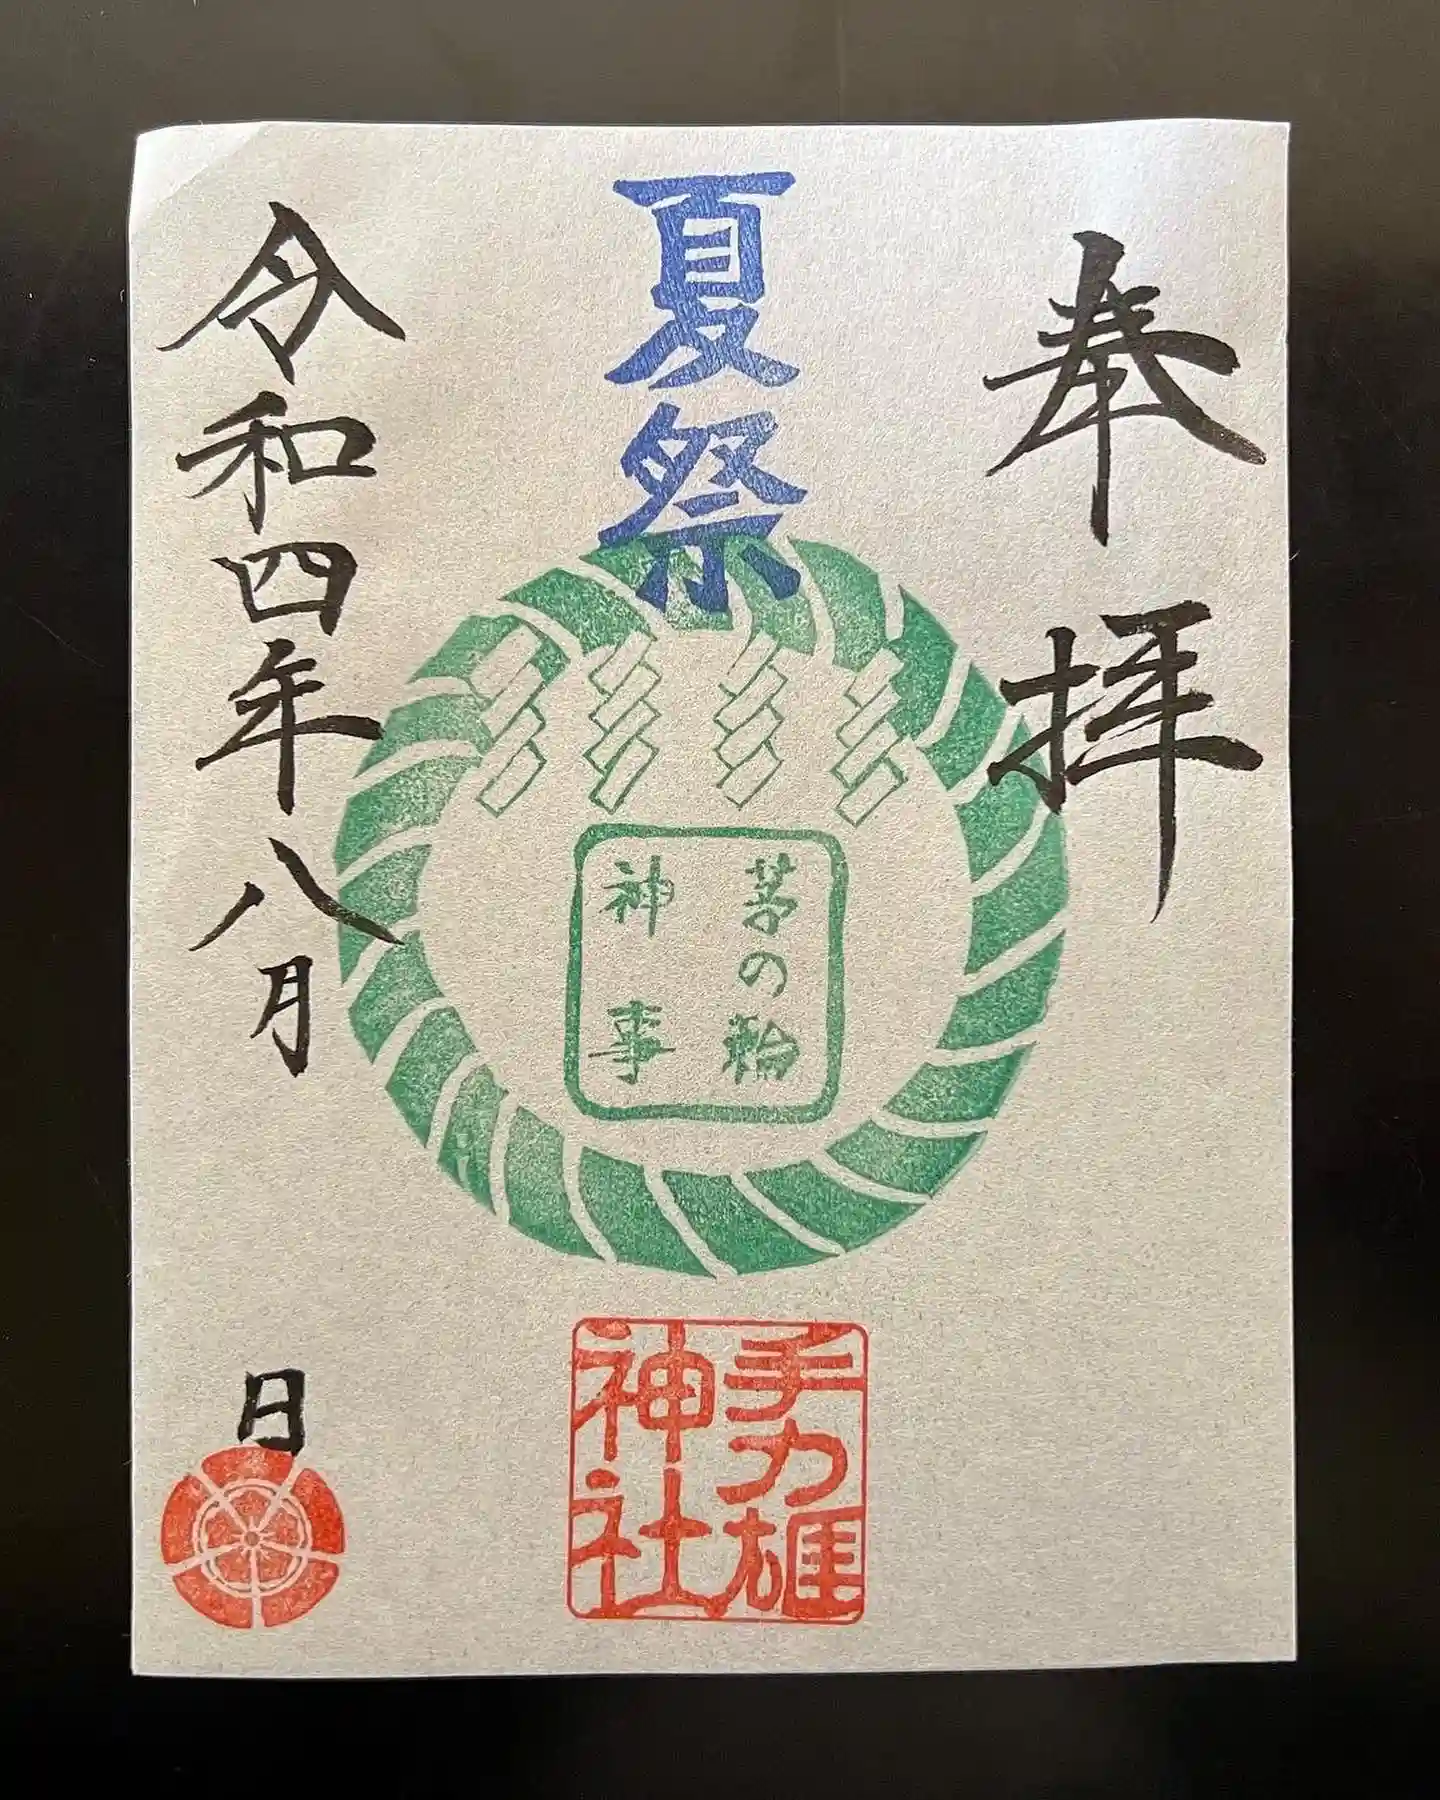 奉拝
夏祭
茅の輪
神事
手力雄
神社
令和四年八月 日